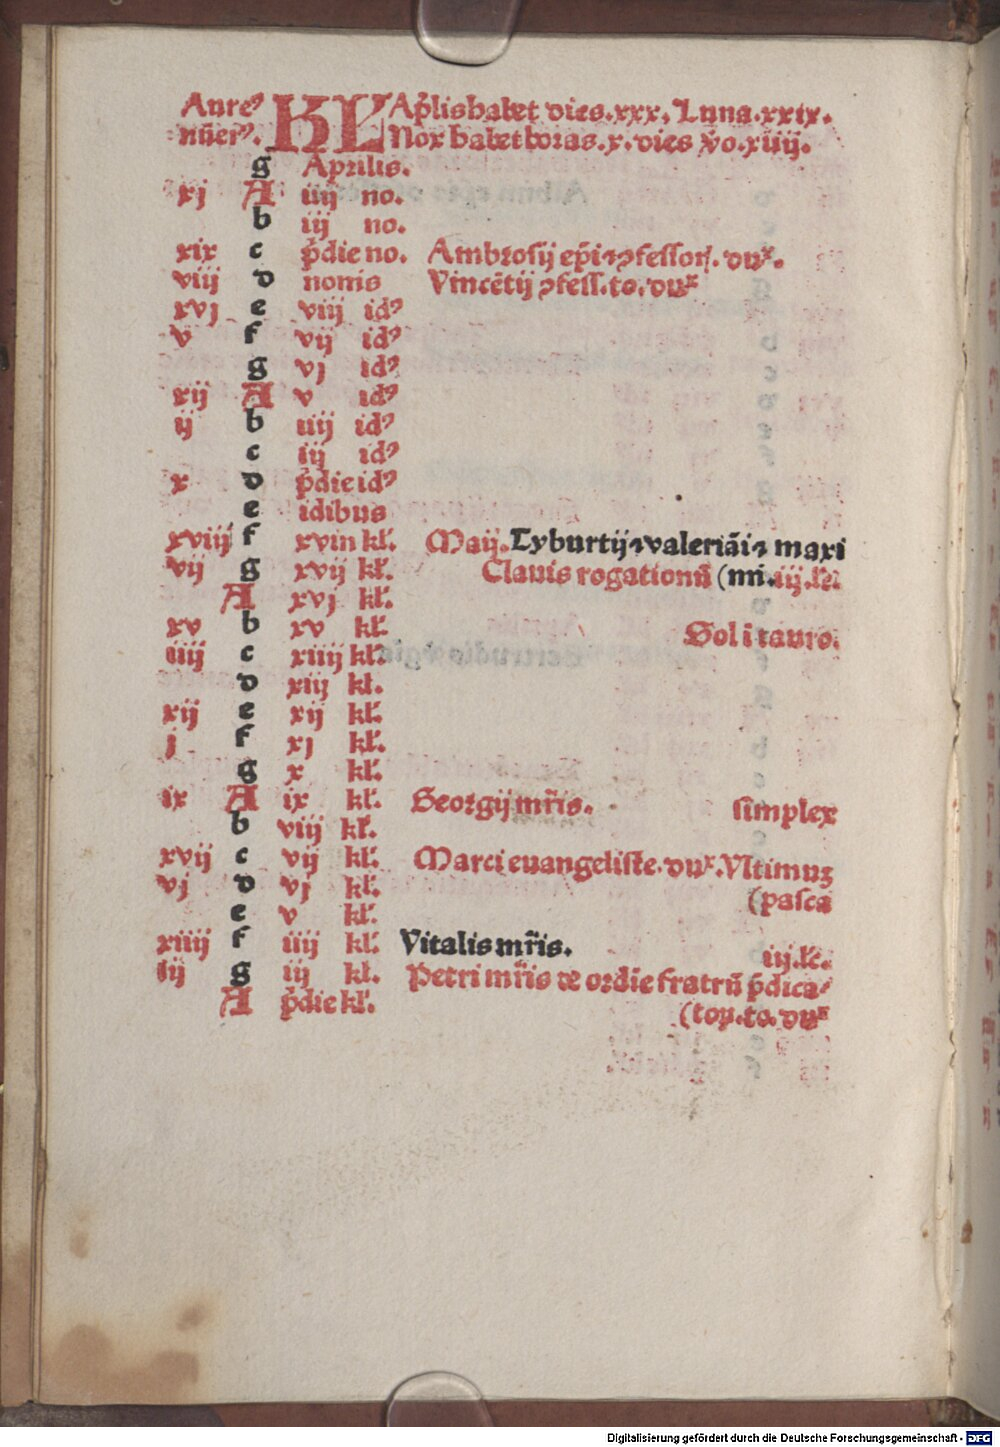 Aureꝰ KL Ap̄lis habet dies.xxx. Luna.xxix.
nūerꝰ. Nox habet horas.x. dies v̄o.xiiij.
g Aprilis.
xj A iiij no.
b iij no.
xix c p̄die no. Ambrosij ep̄i ⁊ ꝯfessor. du᷑.
viij d nonis Vincētij ꝯfess. to. du᷑
xvj e viij idꝰ
v f vij idꝰ
g vj idꝰ
xij A v idꝰ
ij b iiij idꝰ
c iij idꝰ
x d p̄die idꝰ
e idibus
xviij f xviij kl'. Maij. Tyburtij ⁊ valeriāi ⁊ maxi
vij g xvij kl'. Clauis rogationū (mi. iij. lc̄.
A xvj kl'.
xv b xv kl'. Sol i tauro.
iiij c xiiij kl'.
d xiij kl'.
xij e xij kl'.
j f xj kl'.
g x kl'.
ix A ix kl'. Georgij mr̄is. simplex
b viij kl'.
xvij c vij kl'. Marci euangeliste. du᷑. Vltimus
vj d vj kl'. (pasca
e v kl'.
xiiij f iiij kl'. Vitalis mr̄is. iij. lc̄.
iij g iij kl'. Petri mr̄is de ordie fratrū p̄dica⸗
A p̄die kl'. (toꝝ. to. du᷑
Digitalisierung gefördert durch die Deutsche Forschungsgemeinschaft - DFG